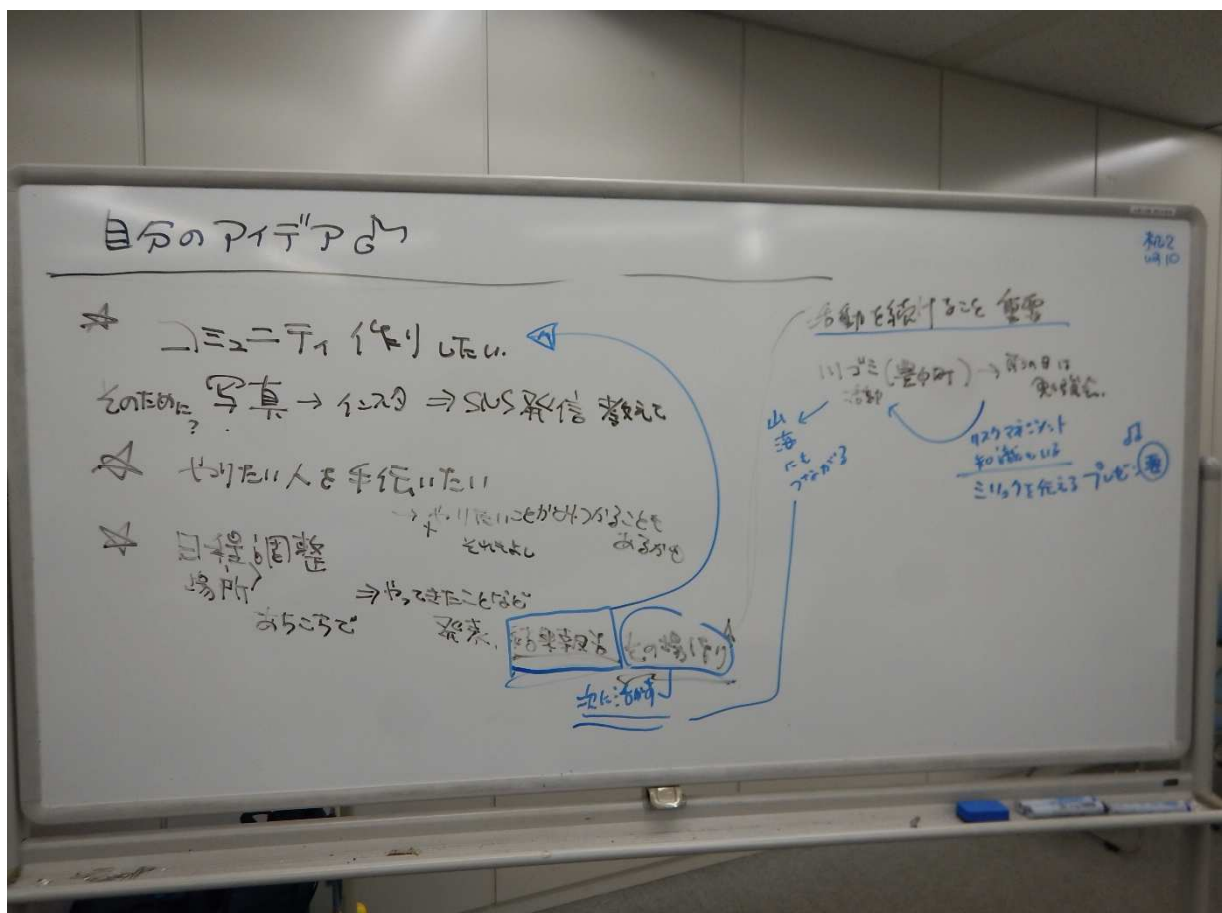 自分のアイデア
☆ コミュニティ作りしたい.
そのために 写真 → インスタ ⇒ SNS発信 教えて
?
☆ やりたい人を手伝いたい
→ やりたいことがみつかることも
それもよし
あるかも
☆ 日程調整
場所
あちこちで
⇒ やってきたことなど
発表、
結果報告
その場作り
次に活かす
活動を続けること 重要
川ゴミ(豊中町) →
活動
山
海
にも
つながる
リスクマネジメント
知識もいる
ミリョクを伝える プレゼン